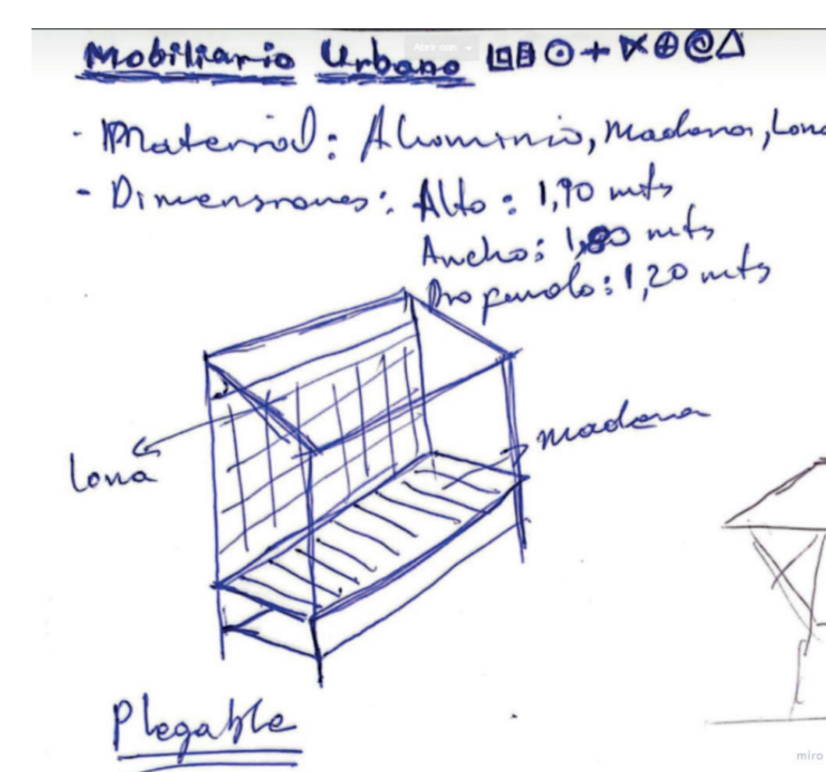 Abrir con
Mobiliario Urbano
- Material: Aluminio, Madera, Lona
- Dimensiones: Alto: 1,90 mts
Ancho: 1,80 mts
Profundo: 1,20 mts
madera
lona
Plegable
miro